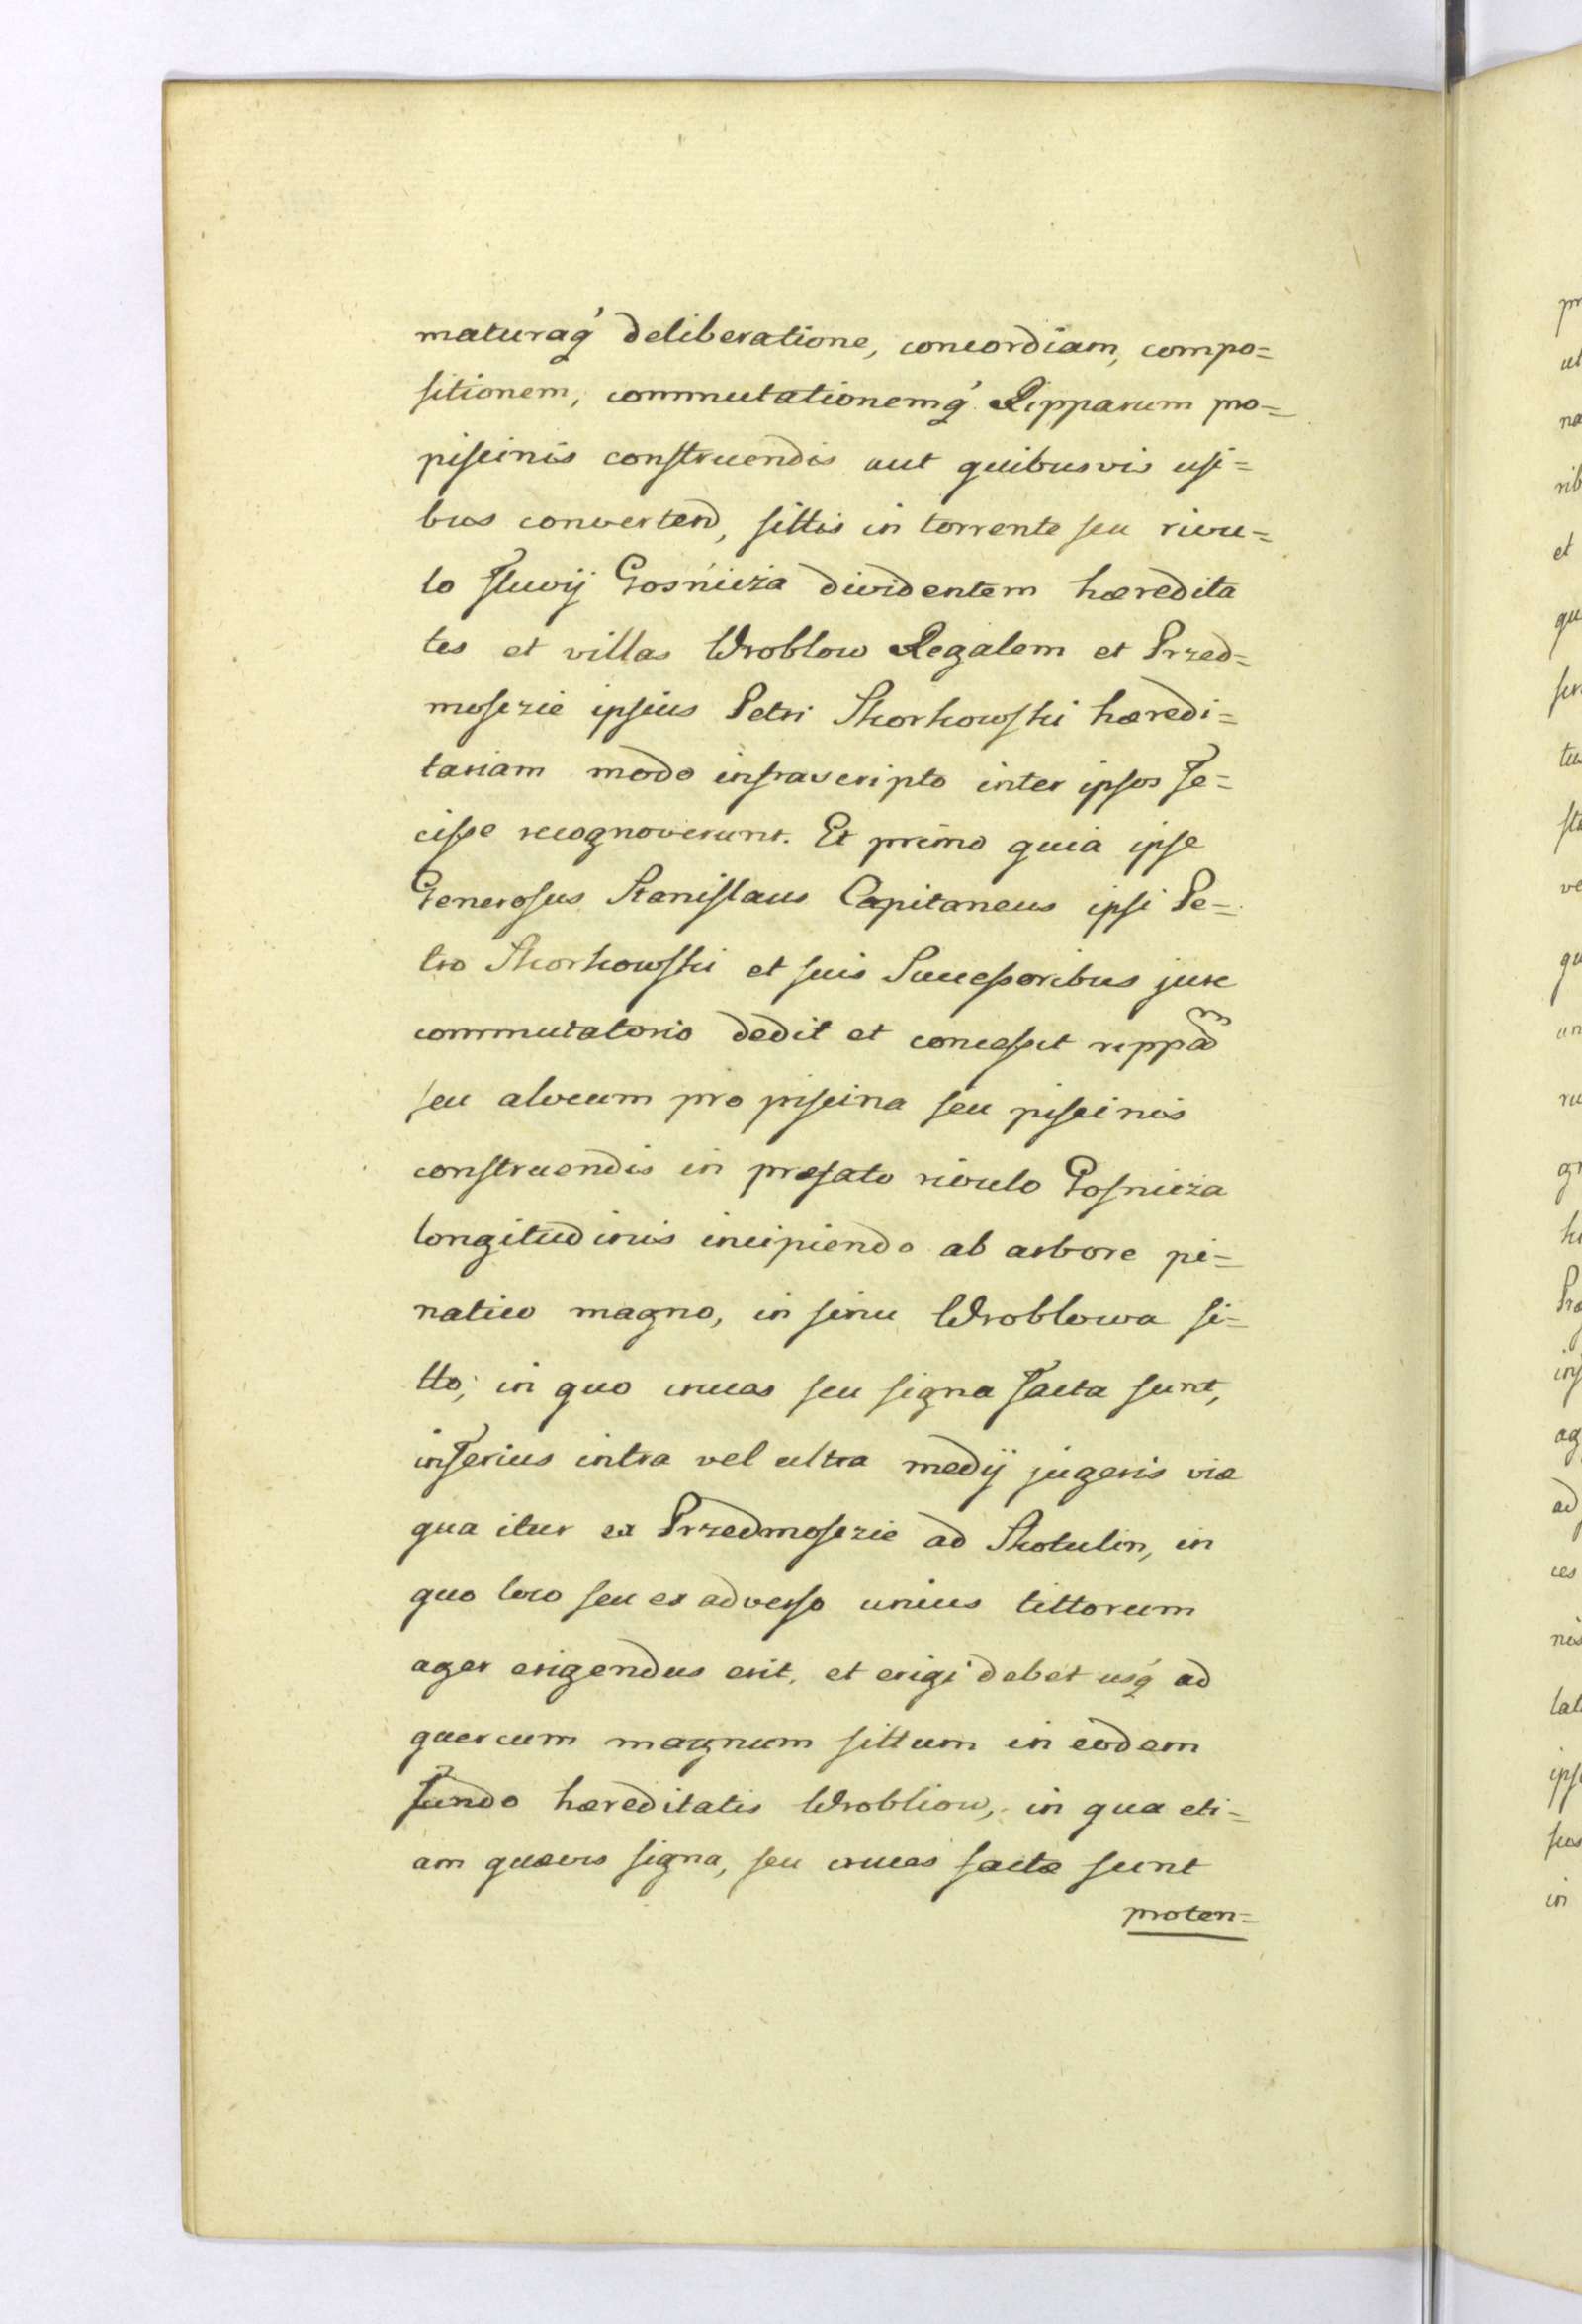 maturaq́ deliberatione, concordiam, compo=
sitionem, commutationemq́ Ripparum pro=
piscinis construendis aut quibusvis usi=
bus convertend, sittis in torrente seu rivu=
lo fluvij Gosńicza dividentem hæredita
tes et villas Wroblow Regalem et Przed=
mosczie ipsius Petri Skorkowski hæredi=
tariam modo infrascripto inter ipsos fe=
cisse recognoverunt. Et primo quia ipse
Generosus Stanislaus Capitaneus ipsi Pe=
tro Skorkowski et suis Successoribus jure
commutatorio dedit et concessit rippam
seu alveum pro piscina seu piscinis
construendis in præfato rivulo Gosnicza
longitudinis incipiendo ab arbore pi=
natico magno, in sinu Wroblowa si=
tto, in quo cruces seu signa facta sunt,
inferius intra vel ultra medij jugeris viæ
qua itur ex Przedmosczie ad Skotulin, in
quo loco seu ex adverso unius littorum
ager erigendus erit, et erigi debet usq́ ad
quercum magnum sittum in eodem
fundo hæreditatis Wrobliow, in qua eti=
am quævis signa, seu cruces factæ sunt
proten=
pr
ut
na
rib
et
qu
ve
qu
un
gr
ag
ad
ces
nis
lat
ips
in